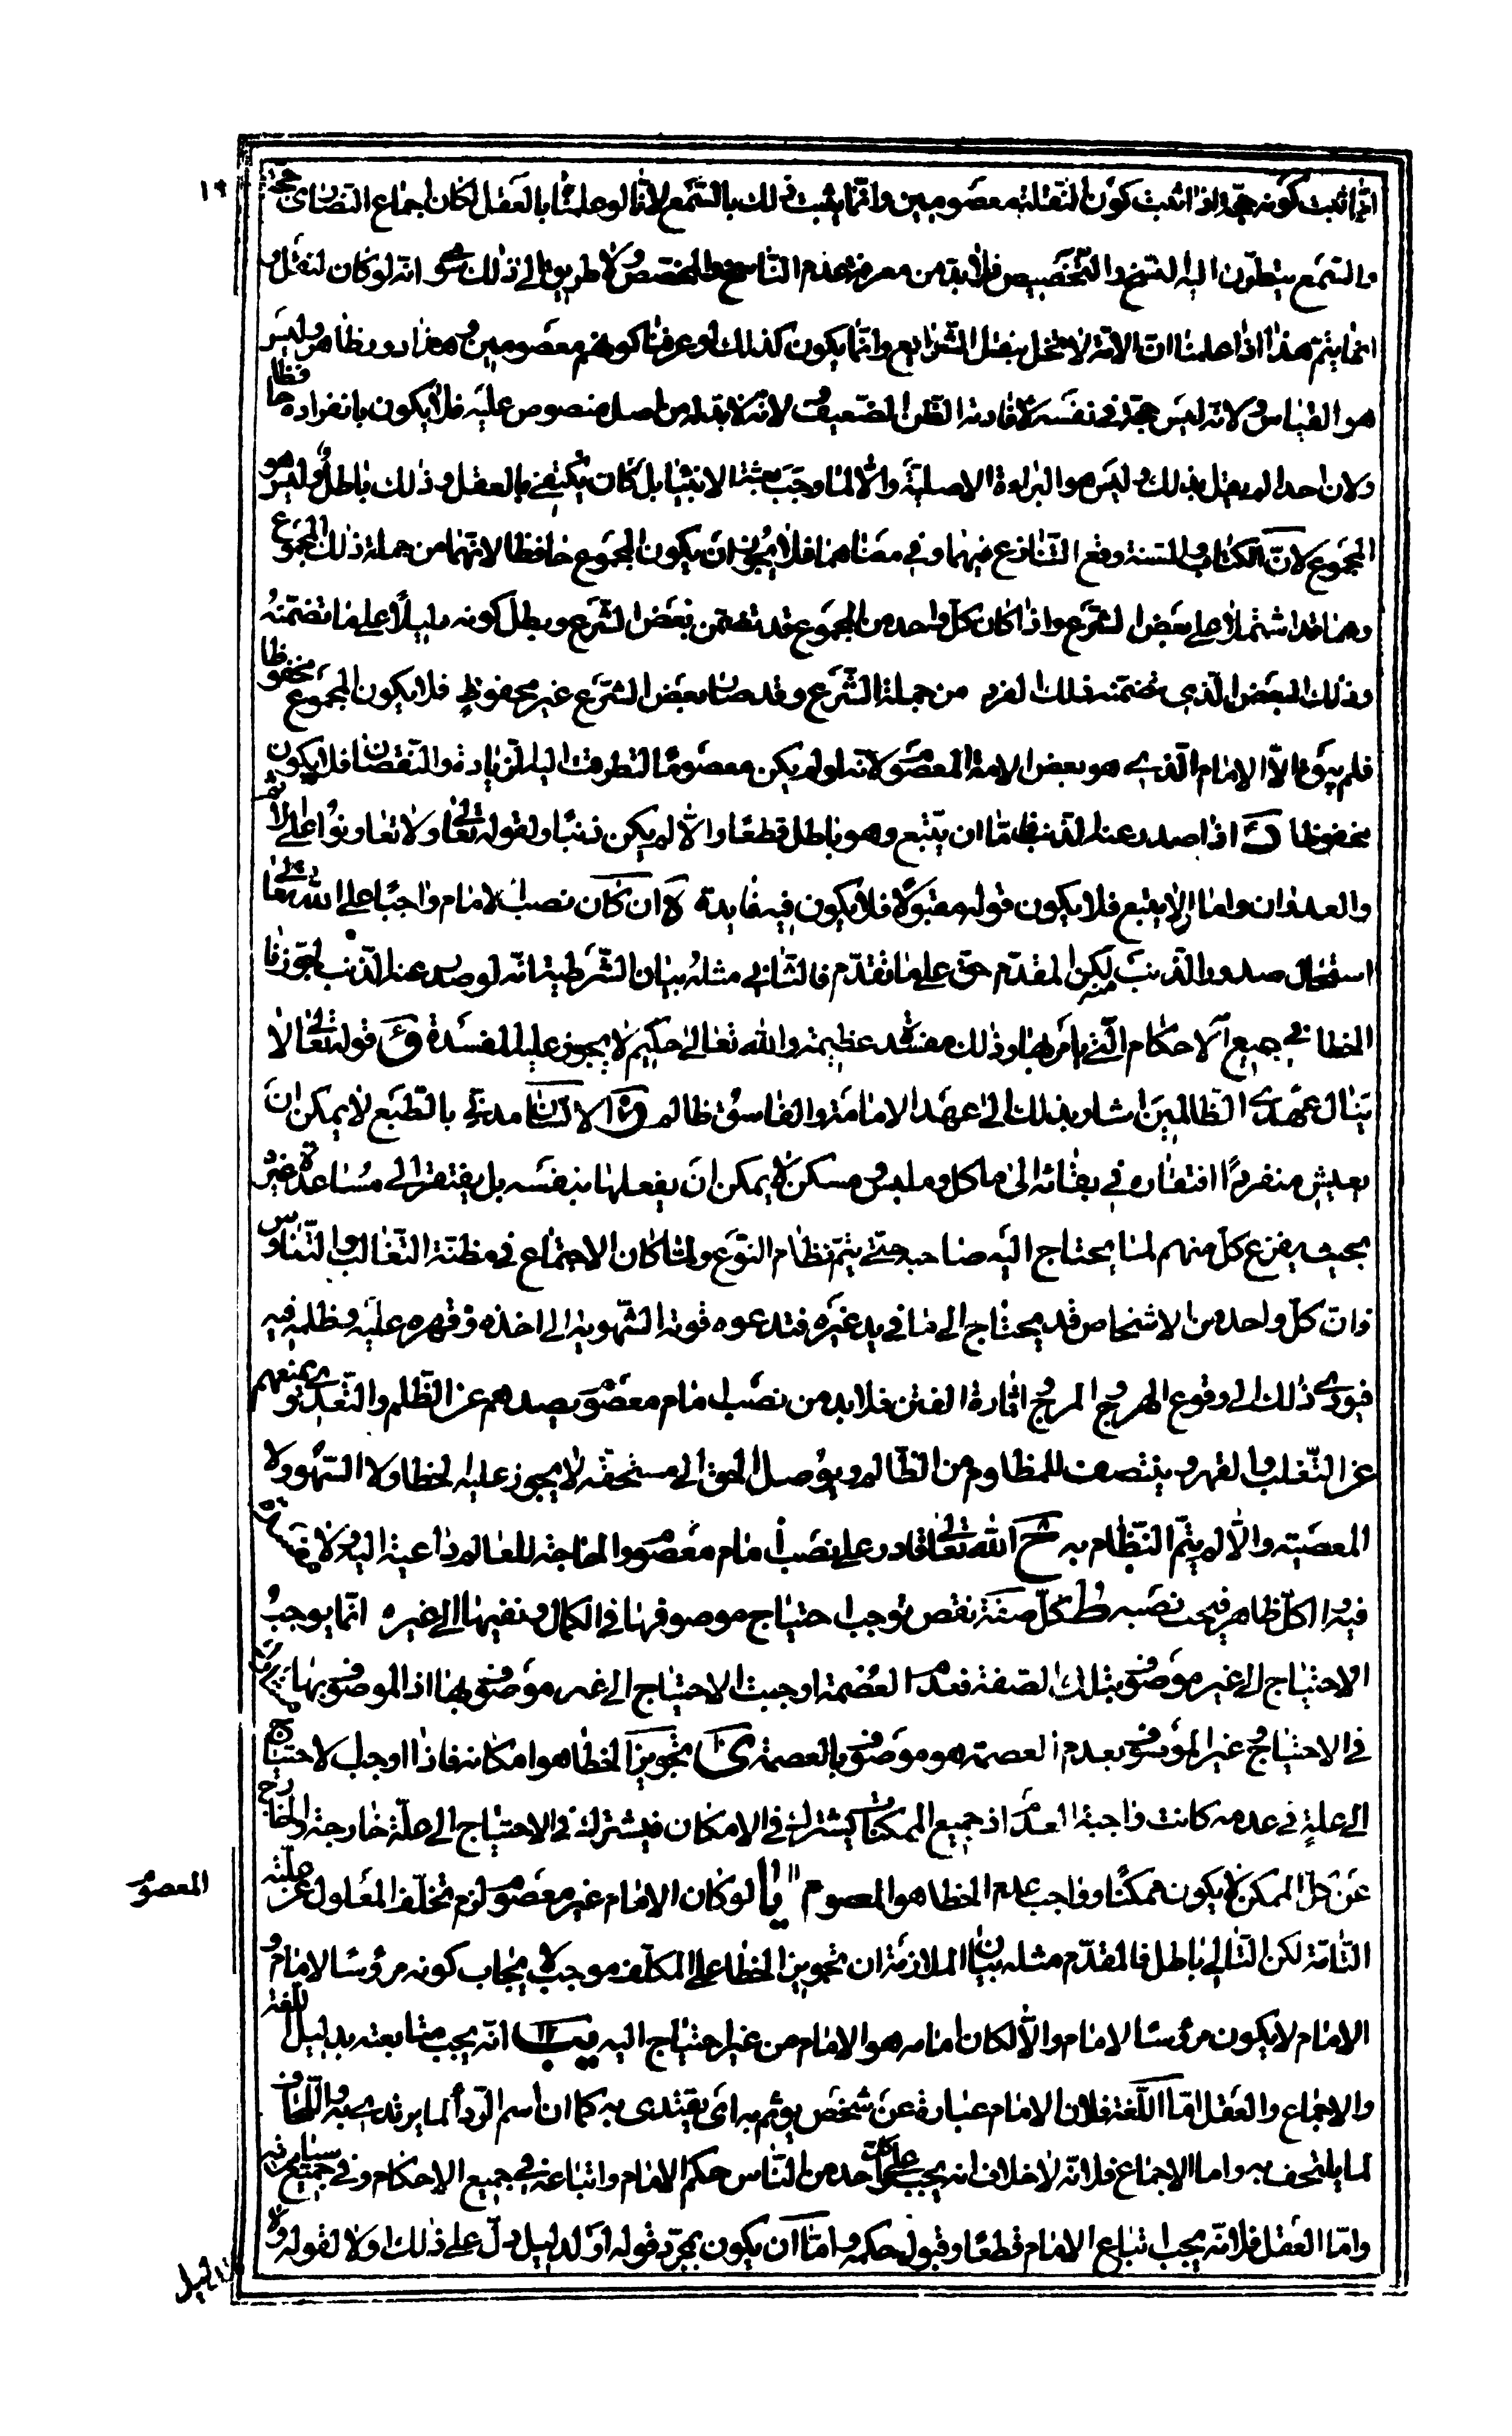 ١٩
انما ثبت كونه حجة اذا ثبت كون النقلة معصومين وانما يثبت ذلك بالسمع لانا لو علمنا بالعقل لكان اجماع النصارى حجة
والسمع يتطرق اليه النسخ والتخصيص فلا بد من معرفة عدم الناسخ والمخصص ولا طريق الى ذلك سوى انه لو كان لنقل و
انما يتم هذا اذا علمنا ان الامة لا تخل بنقل الشرايع وانما يكون كذلك لو عرفنا كونهم معصومين وهذا دور ظاهر وليس
هو القياس لانه ليس حجة في نفسه لافادته الظن الضعيف لانه لا بد له من اصل منصوص عليه فلا يكون بانفراده حافظا
ولان احدا لم يقل بذلك وليس هو البراءة الاصلية والا لما وجب بعثة الانبيا بل كان يكتفى بالعقل وذلك باطل وليس هو
المجموع لان الكتاب والسنة وقع التنازع فيهما وفي معناهما فلا يجوز ان يكون المجموع حافظا لانهما من جملة ذلك المجموع
وهما قد اشتملا على بعض الشرع واذا كان كل واحد من المجموع قد تضمن بعض الشرع وبطل كونه دليلا على ما تضمنه
وذلك البعض الذي تضمنه ذلك الفرد من جملة الشرع وقد صار بعض الشرع غير محفوظ فلا يكون المجموع محفوظا
فلم يبق الا الامام الذي هو بعض الامة المعصوم لانه لو لم يكن معصوما لتطرقت اليه الزيادة والنقصان فلا يكون
محفوظا اذا صدر عنه الذنب فاما ان يتبع وهو باطل قطعا والا لم يكن ذنبا ولقوله تعالى ولا تعاونوا على الاثم
والعدوان واما ان لا يتبع فلا يكون قوله مقبولا فلا يكون فيه فايدة ان كان نصب الامام واجبا على الله تعالى
استحال صدور الذنب منه لكن المقدم حق على ما تقدم فالتالي مثله بيان الشرطية انه لو صدر عنه الذنب لجوزنا
الخطا في جميع الاحكام التي يامر بها وذلك مفسدة عظيمة والله تعالى حكيم لا يجوز عليه المفسدة قوله تعالى لا
ينال عهدي الظالمين اشار بذلك الى عهد الامامة والفاسق ظالم الانسان مدني بالطبع لا يمكن ان
يعيش منفردا افتقاره في بقائه الى ماكل وملبس ومسكن لا يمكن ان يفعلها بنفسه بل يفتقر الى مساعدة غيره
بحيث يفزع كل منهم لما يحتاج اليه صاحبه حتى يتم نظام النوع ولما كان الاجتماع في مظنة التغالب والتناوس
فان كل واحد من الاشخاص قد يحتاج الى ما في يد غيره فتدعوه قوته الشهوية الى اخذه وقهره عليه وظلمه فيه
فيؤدي ذلك الى وقوع الهرج والمرج واثارة الفتن فلا بد من نصب امام معصوم يصدهم عن الظلم والتعدي ويمنعهم
عن التغلب والقهر وينتصف للمظلوم من الظالم ويوصل الحق الى مستحقه لا يجوز عليه الخطا ولا السهو ولا
المعصية والا لم يتم النظام به الله تعالى قادر على نصب امام معصوم والحاجة للعالم داعية اليه ولا مفسدة
فيه والكل ظاهر فيجب نصبه كل صفة نقص توجب احتياج موصوفها في الكمال ونفيها الى غيره انما يوجب
الاحتياج الى غير موصوف بتلك الصفة فعدم العصمة اوجبت الاحتياج الى غير موصوف بها اذ الموصوف بها
في الاحتياج وغير الموصوف بعدم العصمة هو موصوف بالعصمة تجويز الخطا هو امكانه فاذا اوجب الاحتياج
الى علة في عدمه كانت واجبة العدم اذ جميع الممكنات يشترك في الامكان فيشترك في الاحتياج الى علة خارجة والخارج
عن كل الممكن لا يكون ممكنا وواجب عدم الخطا هو المعصوم يا لو كان الامام غير معصوم لزم تخلف المعلول عن علته
المعصوم
التامة لكن التالي باطل فالمقدم مثله بيان الملازمة ان تجويز الخطا على المكلف موجب لايجاب كونه مرؤسا لامام و
الامام لا يكون مرؤسا لامام والا لكان امامه هو الامام من غير احتياج اليه يب انه يجب متابعته بدليل اللغة
والاجماع والعقل اما اللغة فلان الامام عبارة عن شخص يؤتم به اى يقتدى به كما ان اسم الردا لما يرتدى به واللحاف
لما يلتحف به واما الاجماع فلانه لا خلاف انه يجب على كل واحد من الناس حكم الامام واتباعه في جميع الاحكام وفي جميع
واما العقل فلانه يجب اتباع الامام قطعا وقبول حكمه واما ان يكون بمجرد قوله او لدليل دل على ذلك اولا لقوله ولا